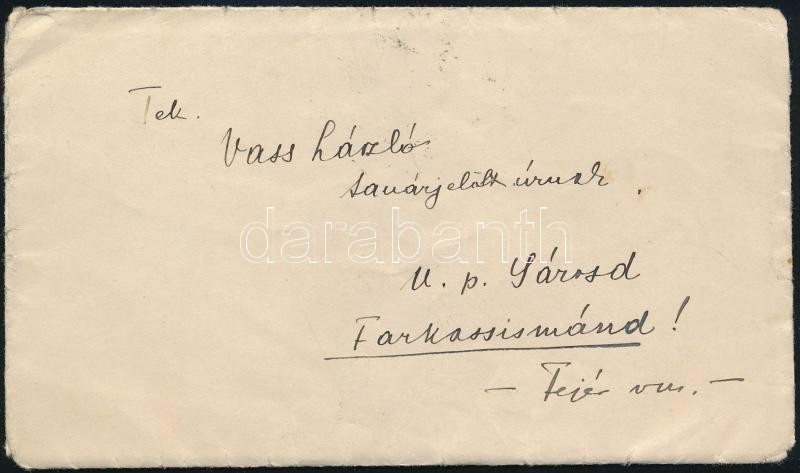 Tek.
Vass László
tanárjelölt úrnak.
darabanth
U. p. Sárosd
Farkassismánd!
- Fejér vm. -